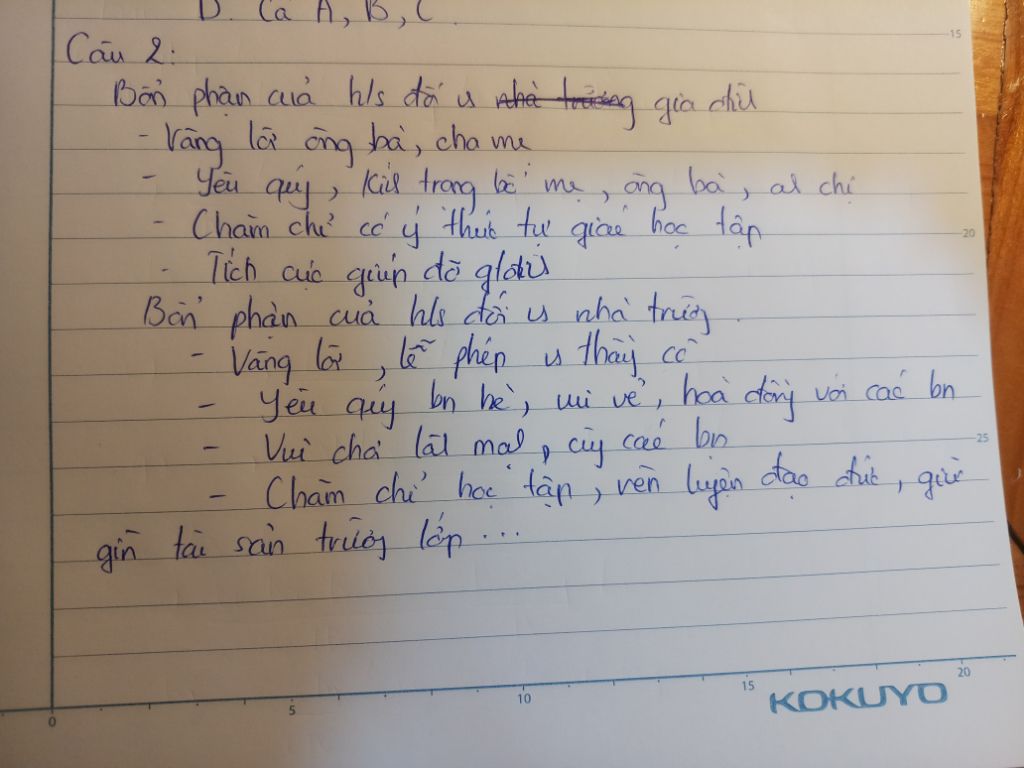 D. Cả A, B, C.
Câu 2:
Bổn phận của h/s đối vs nhà trường gia đìl
- Vâng lời ông bà, cha mẹ
- Yêu quý, Kíl trọng bố mẹ, ông bà, al chị
- Chăm chỉ có ý thức tự giác học tập
- Tích cực giúp đỡ g/đìl
Bổn phận của h/s đối vs nhà trường.
- Vâng lời, lễ phép vs thầy cô
- Yêu quý bn bè, vui vẻ, hoà đồng với các bn
- Vui chơi làl mạl, cùng các bn
- Chăm chỉ học tập, rèn luyện đạo đức, giữ
gìn tài sản trường lớp...
15
20
25
0
5
10
15
20
KOKUYO